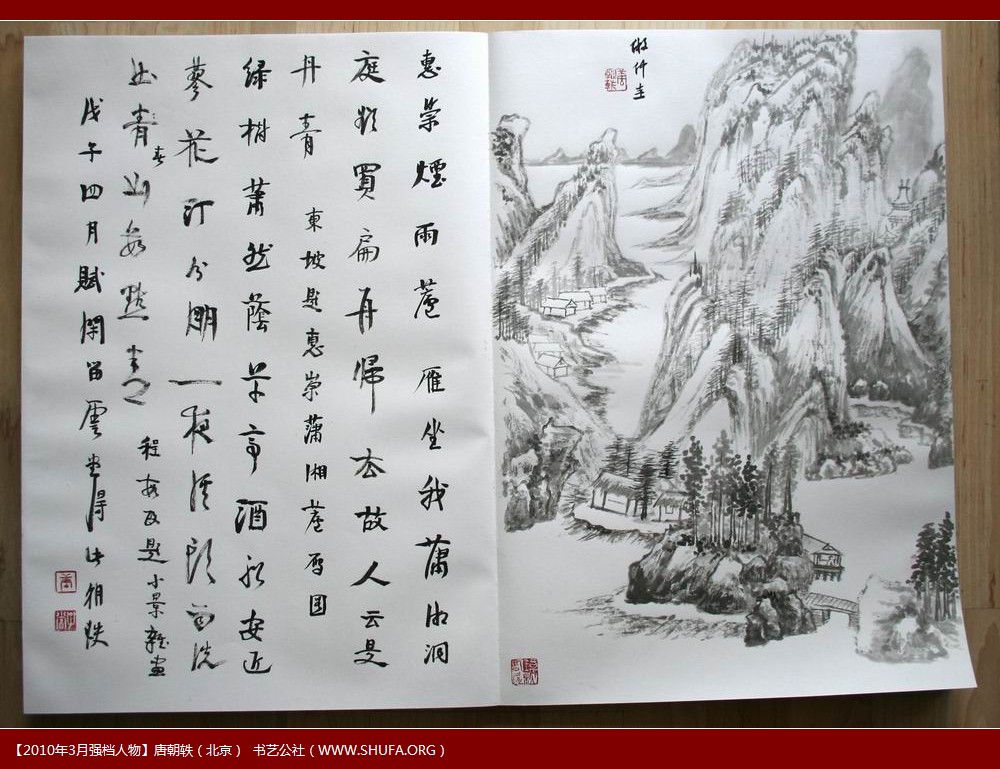 倣仲圭
惠崇煙雨蘆雁坐我瀟湘洞
庭欲買扁舟歸去故人云是
丹青 東坡題惠崇瀟湘蘆雁图
緑樹蕭然蔭草亭酒船安近
蓼花汀分明一夜溪頭雨洗
出青山數點青 程敏政題小景雜畫
戊子四月賦閑留雲堂得此朝軼
【2010年3月强档人物】唐朝轶（北京） 书艺公社（WWW.SHUFA.ORG）